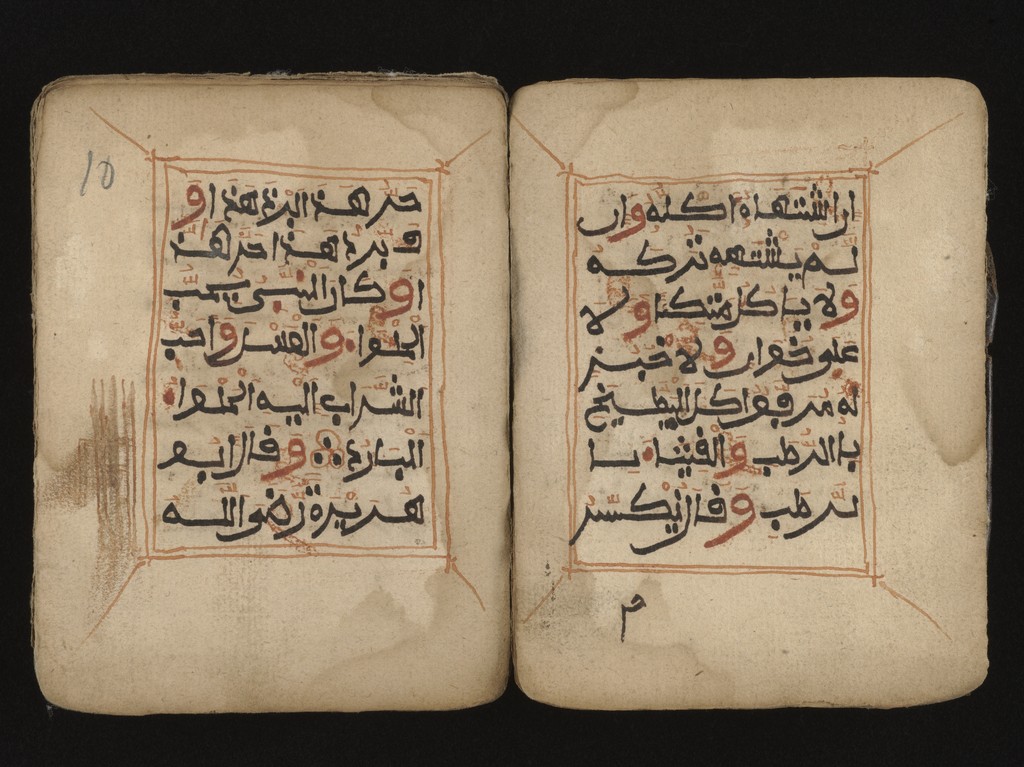 ان اشتهاه اكله وان
لم يشتهه تركه
ولا ياكل متكئا ولا
على خوان ولا خبز
له مرقق واكل البطيخ
بالرطب والقثاء با
لرطب وقال نكسر
م
10
حر هذا ببرد هذا و
برد هذا بحر هذا
وكان النبي يحب
الحلوا والعسل واحب
الشراب اليه الحلوا
البارد وقال ابو
هريرة رضي الله